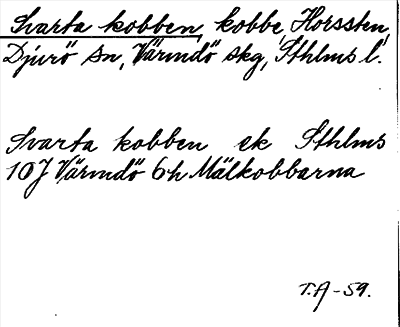 Svarta kobben, kobbe, Horssten,
Djurö sn, Värmdö skg, Sthlms l.
Svarta kobben ek Sthlms
10J Värmdö 6h Mälkobbarna
T.A-59.